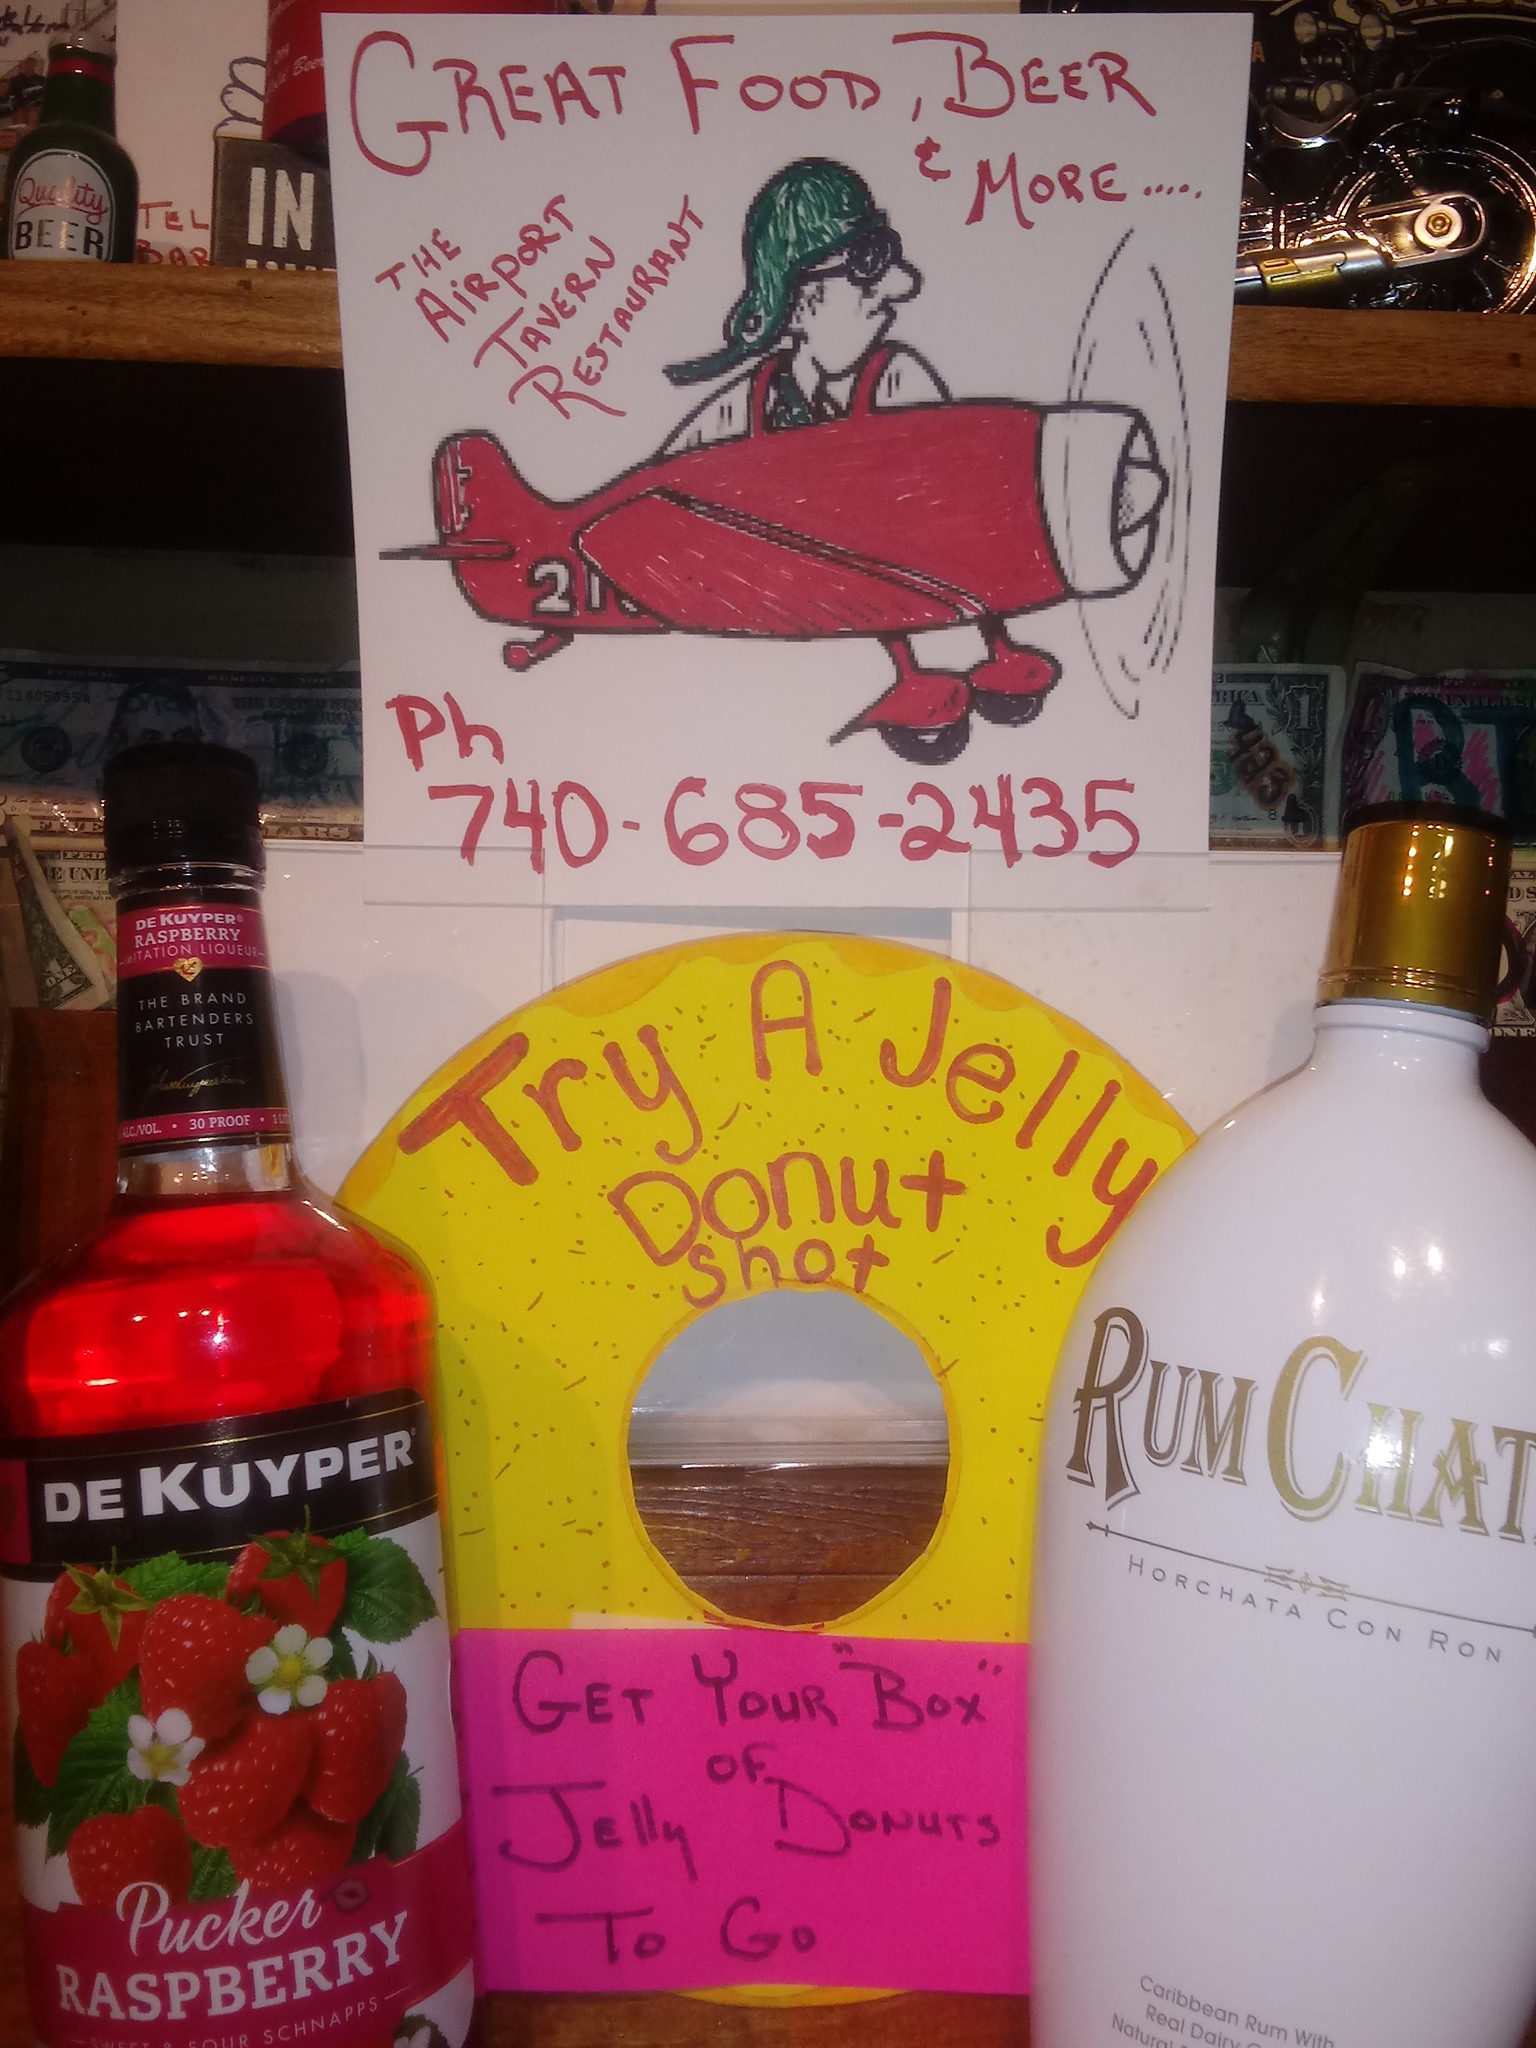 GREAT FOOD, BEER
& MORE.....
THE
AIRPORT
TAVERN
RESTAURANT
21
Ph
740-685-2435
Quality
BEER
TEL
BAR
IN
Beer
DE KUYPER®
RASPBERRY
IMITATION LIQUEUR
THE BRAND
BARTENDERS
TRUST
ALC/VOL. • 30 PROOF • 1
DE KUYPER®
Pucker
RASPBERRY
SWEET & SOUR SCHNAPPS
Try A Jelly
Donut
shot
GET YOUR "BOX"
OF
Jelly DONUTS
To Go
RUMCHAT
HORCHATA CON RON
Caribbean Rum With
Real Dairy
Natural